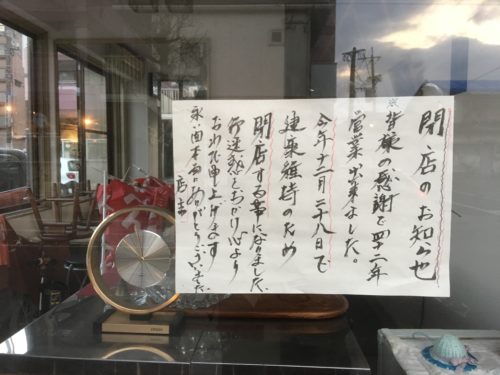 閉店のお知らせ
皆様の感謝で四十二年
営業出来ました。
今年十二月二十八日で
建築維持のため
閉店する事になりました
御迷惑をおかけし心より
おわび申し上げます
永い間本当にありがとうございました
店主